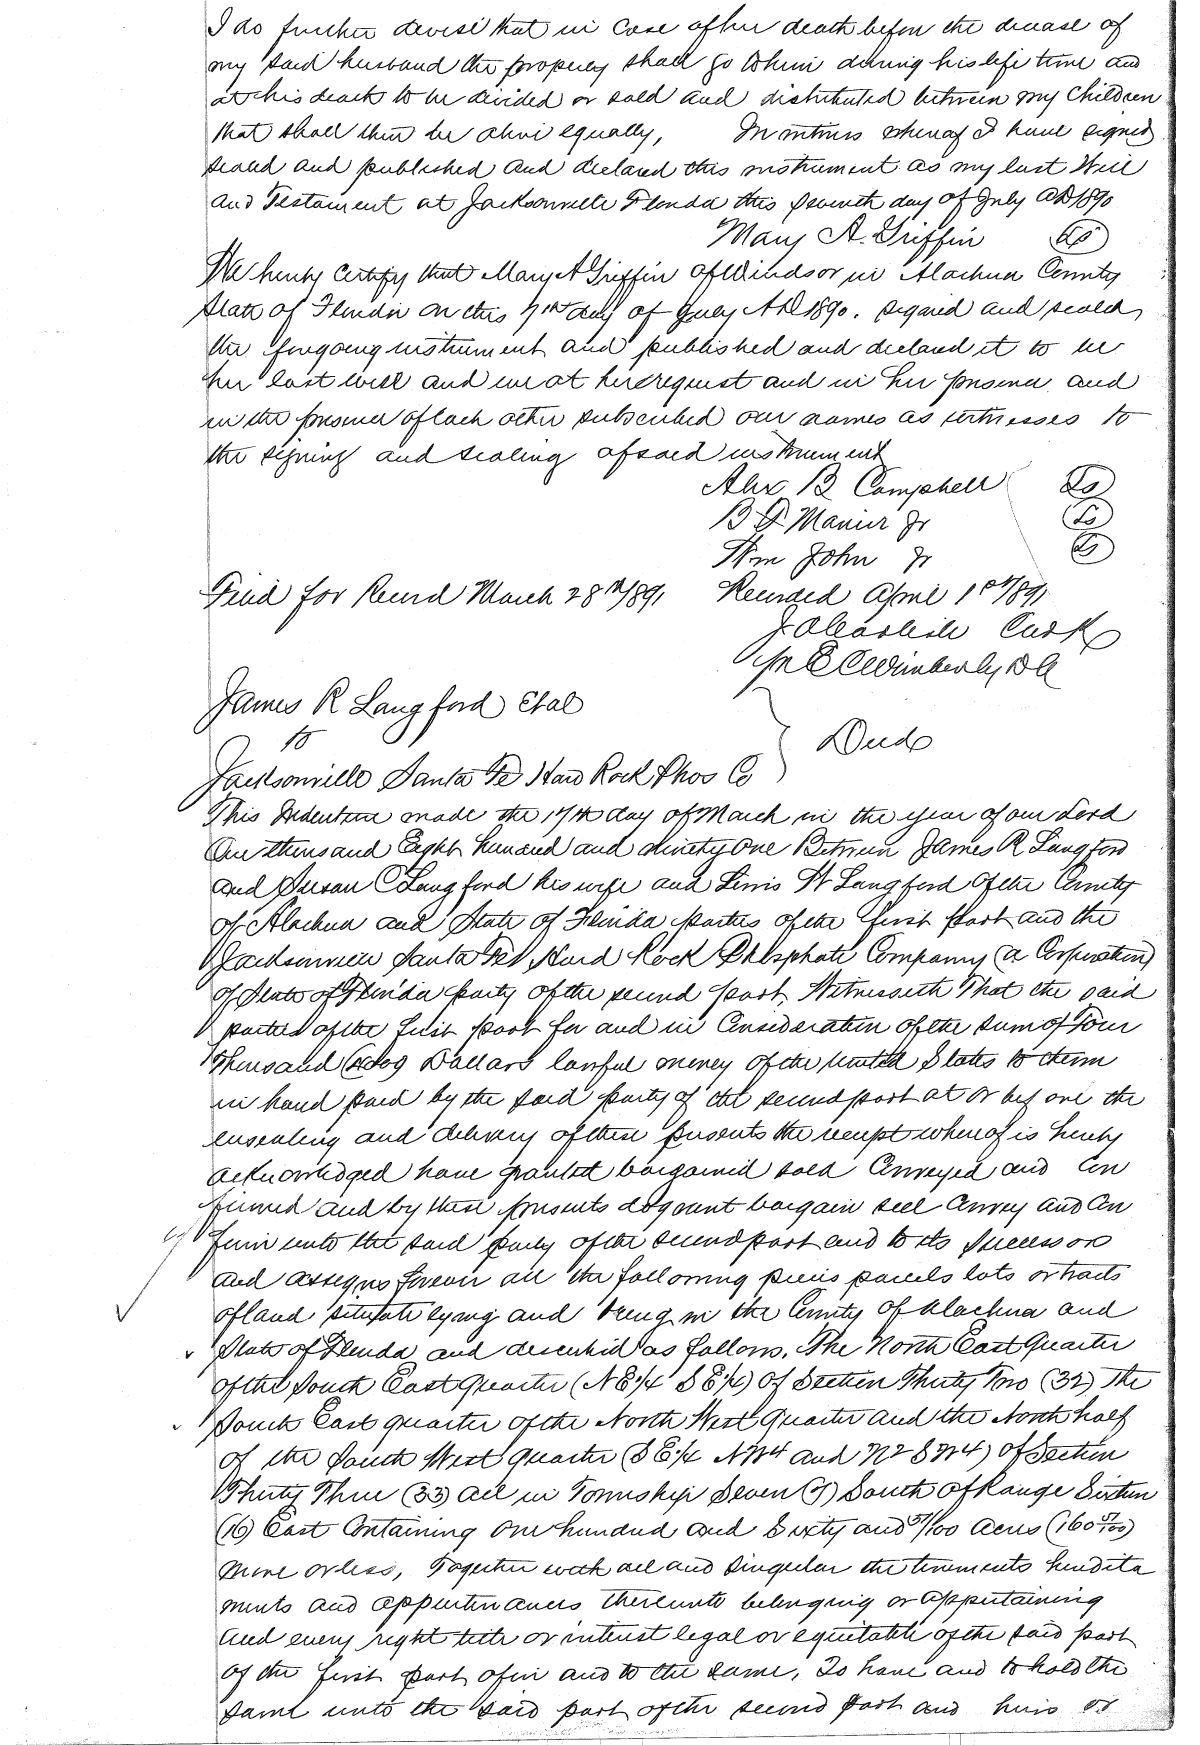 I do further devise that in case of her death before the decease of
my said husband the property shall go to him during his life time and
at his death to be divided or sold and distributed between my Children
that shall then be alive equally, In witness whereof I have signed
sealed and published and declared this instrument as my last Will
and Testament at Jacksonville Florida this seventh day of July AD 1890
Mary A. Griffin LS
We hereby Certify that Mary A Griffin of Windsor in Alachua County
State of Florida on this 7th day of July AD 1890. signed and sealed
the foregoing instrument and published and declared it to be
her last will and we at her request and in her presence and
in the presence of each other subscribed our names as witnesses to
the signing and sealing of said instrument
Alex B Campbell LS
B Manier Jr LS
Wm John Jr LS
Filed for Record March 28th/891 Recorded April 1st/891
J A Carlisle Clerk
pr E C Wimberly DC
James R Langford Etal
to
Deed
Jacksonville Santa Fe Hard Rock Phos Co
This Indenture made the 17th day of March in the year of our Lord
One thousand Eight hundred and Ninety One Between James R Langford
and Susan C Langford his wife and Lewis W Langford of the County
of Alachua and State of Florida parties of the first part and the
Jacksonville Santa Fe Hard Rock Phosphate Company (a Corporation)
of State of Florida party of the second part, Witnesseth That the said
parties of the first part for and in Consideration of the sum of Four
Thousand (4000) Dollars lawful money of the United States to them
in hand paid by the said party of the second part at or before the
ensealing and delivery of these presents the receipt whereof is hereby
acknowledged have granted bargained sold Conveyed and Con
firmed and by these presents do grant bargain sell Convey and Con
firm unto the said party of the second part and to its Successors
and assigns forever all the following pieces parcels lots or tracts
of land situate lying and being in the County of Alachua and
State of Florida and described as follows. The North East Quarter
of the South East Quarter (NE1/4 SE1/4) of Section Thirty Two (32) The
South East quarter of the North West Quarter and the North half
of the South West Quarter (SE1/4 NW4 and N2 SW4) of Section
Thirty Three (33) all in Township Seven (7) South of Range Sixteen
(16) East Containing One hundred and Sixty and 57/100 Acres (160 57/100)
More or less, Together with all and singular the tenements heredita
ments and appurtenances thereunto belonging or appertaining
and every right title or interest legal or equitable of the said part
of the first part of in and to the same, To have and to hold the
same unto the said part of the second part and heirs or